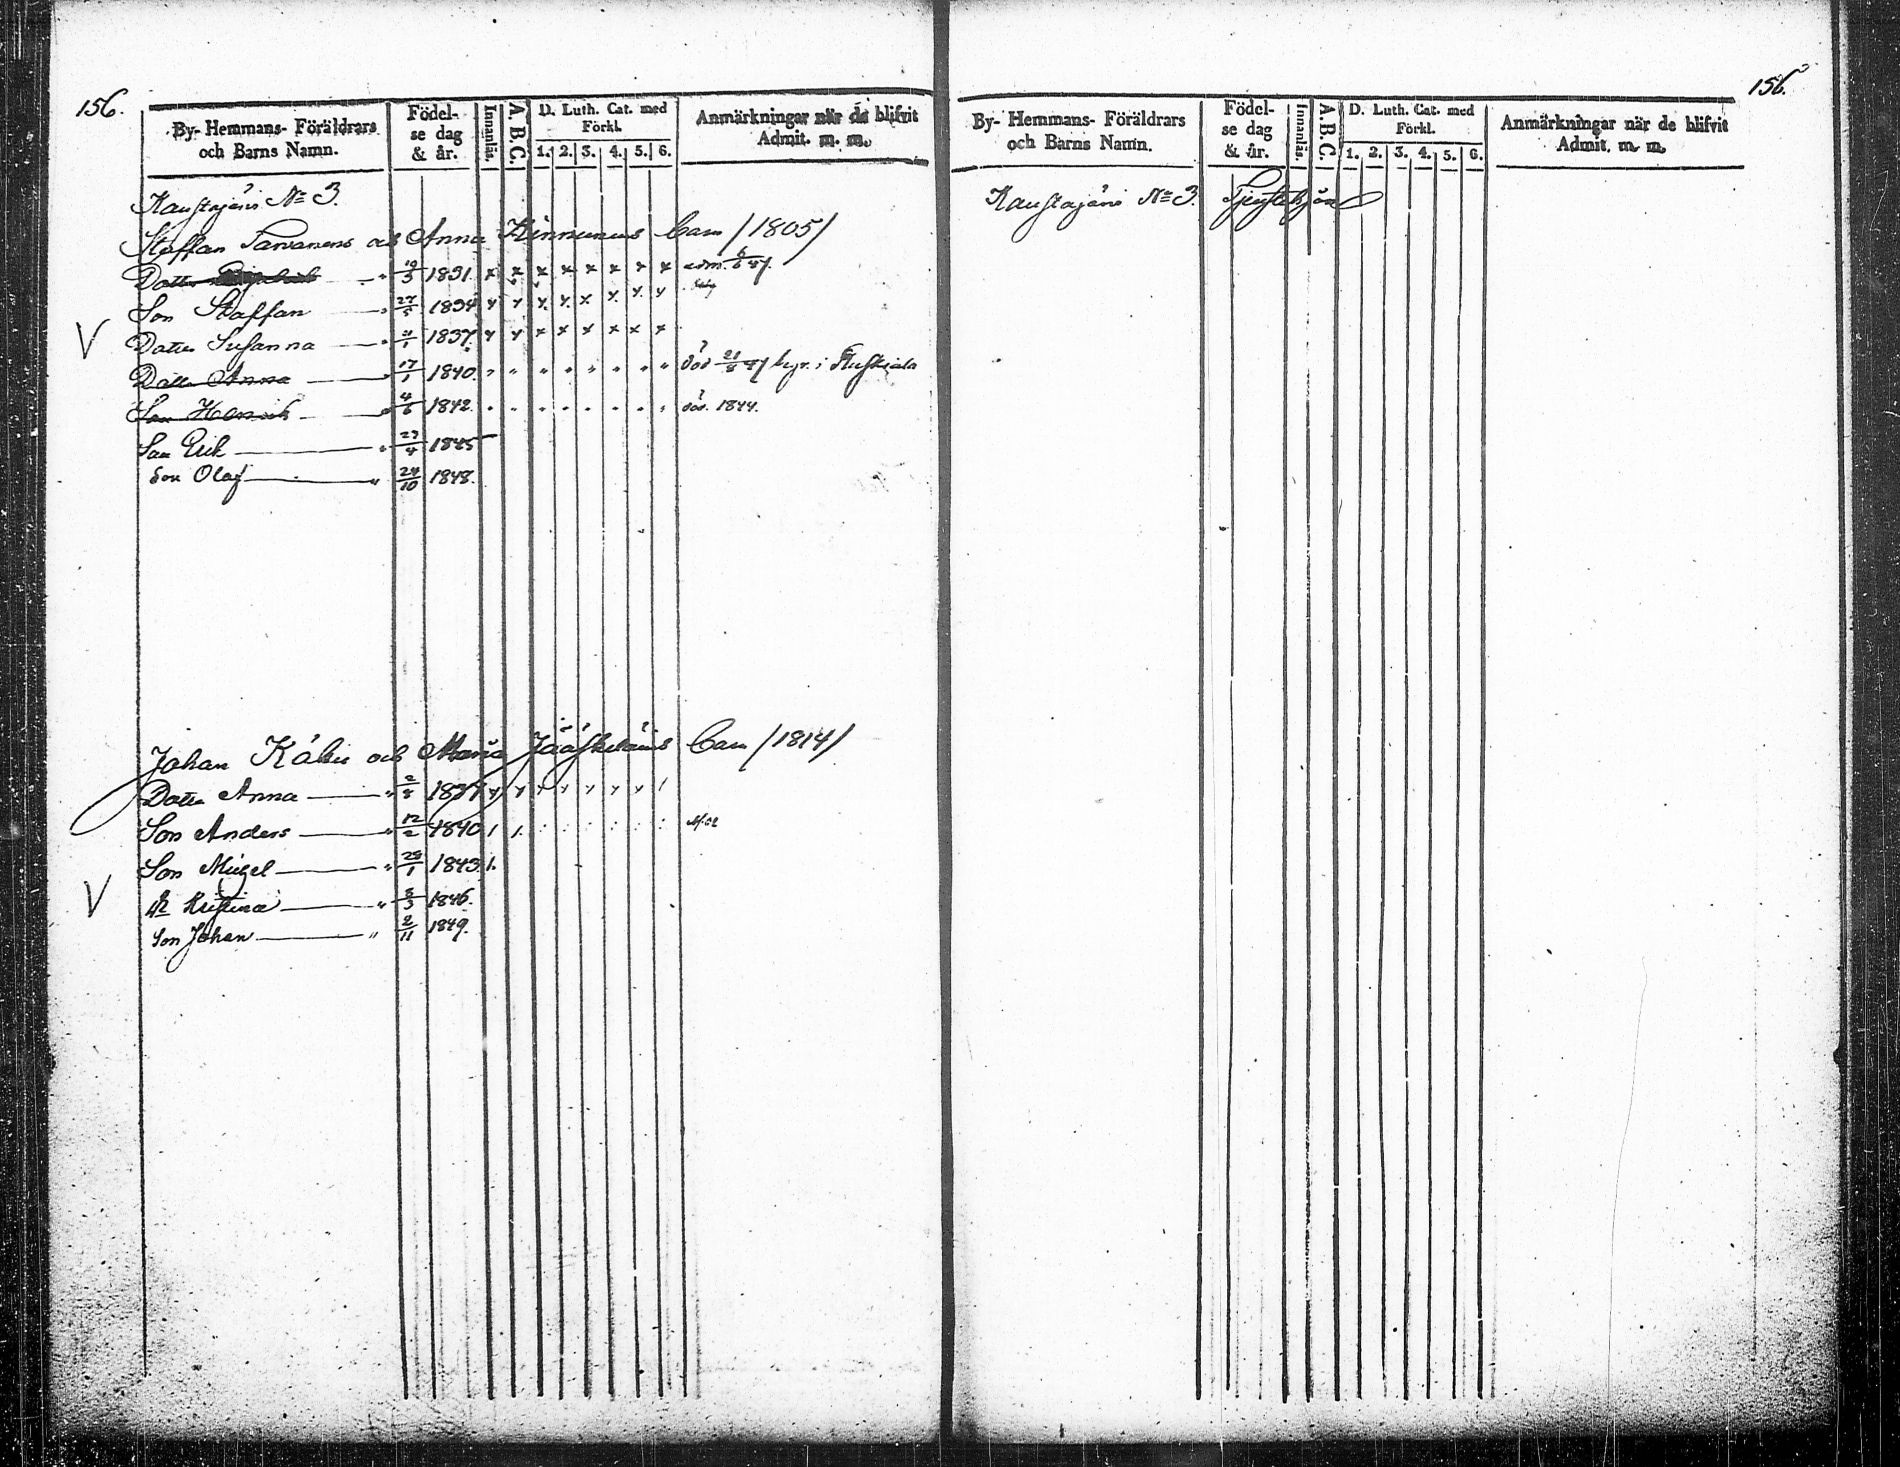 156.
By- Hemmans- Föräldrars och Barns Namn. Födel-se dag & år. Innanläs. A.B.C. D. Luth. Cat. med Förkl. 1. 2. 3. 4. 5. 6. Anmärkningar när de blifvit Admit. m. m.
Kaustajärvi No 3.
Staffan Parvianens och Anna Kinnunens Barn /1805/
Dotter " 19/3 1831. x x x x x x x x adm. 6/6 47.
Son Staffan " 27/5 1834 x x x x x x x x
V Dotter Susanna " 11/1 1837. x x x x x x x x
Dotter Anna " 17/1 1840. " " " " " " " " död 21/8 47 begr. i Ruskiala
Son Henrik " 4/6 1842. " " " " " " " " död. 1844.
Son Erik " 27/4 1845
Son Olof " 24/10 1848.
Johan Käkis och Maria Jääskeläinens Barn /1814/
Dotter Anna " 2/8 1837 x x x x x x x /
Son Anders " 12/2 1840 / /. : : : : : :
Son Migel " 29/1 1843 /.
V Kristina " 8/3 1846.
Son Johan " 2/11 1849.
156.
By- Hemmans- Föräldrars och Barns Namn. Födel-se dag & år. Innanläs. A.B.C. D. Luth. Cat. med Förkl. 1. 2. 3. 4. 5. 6. Anmärkningar när de blifvit Admit. m. m.
Kaustajärvi No 3. Tjenstehjon